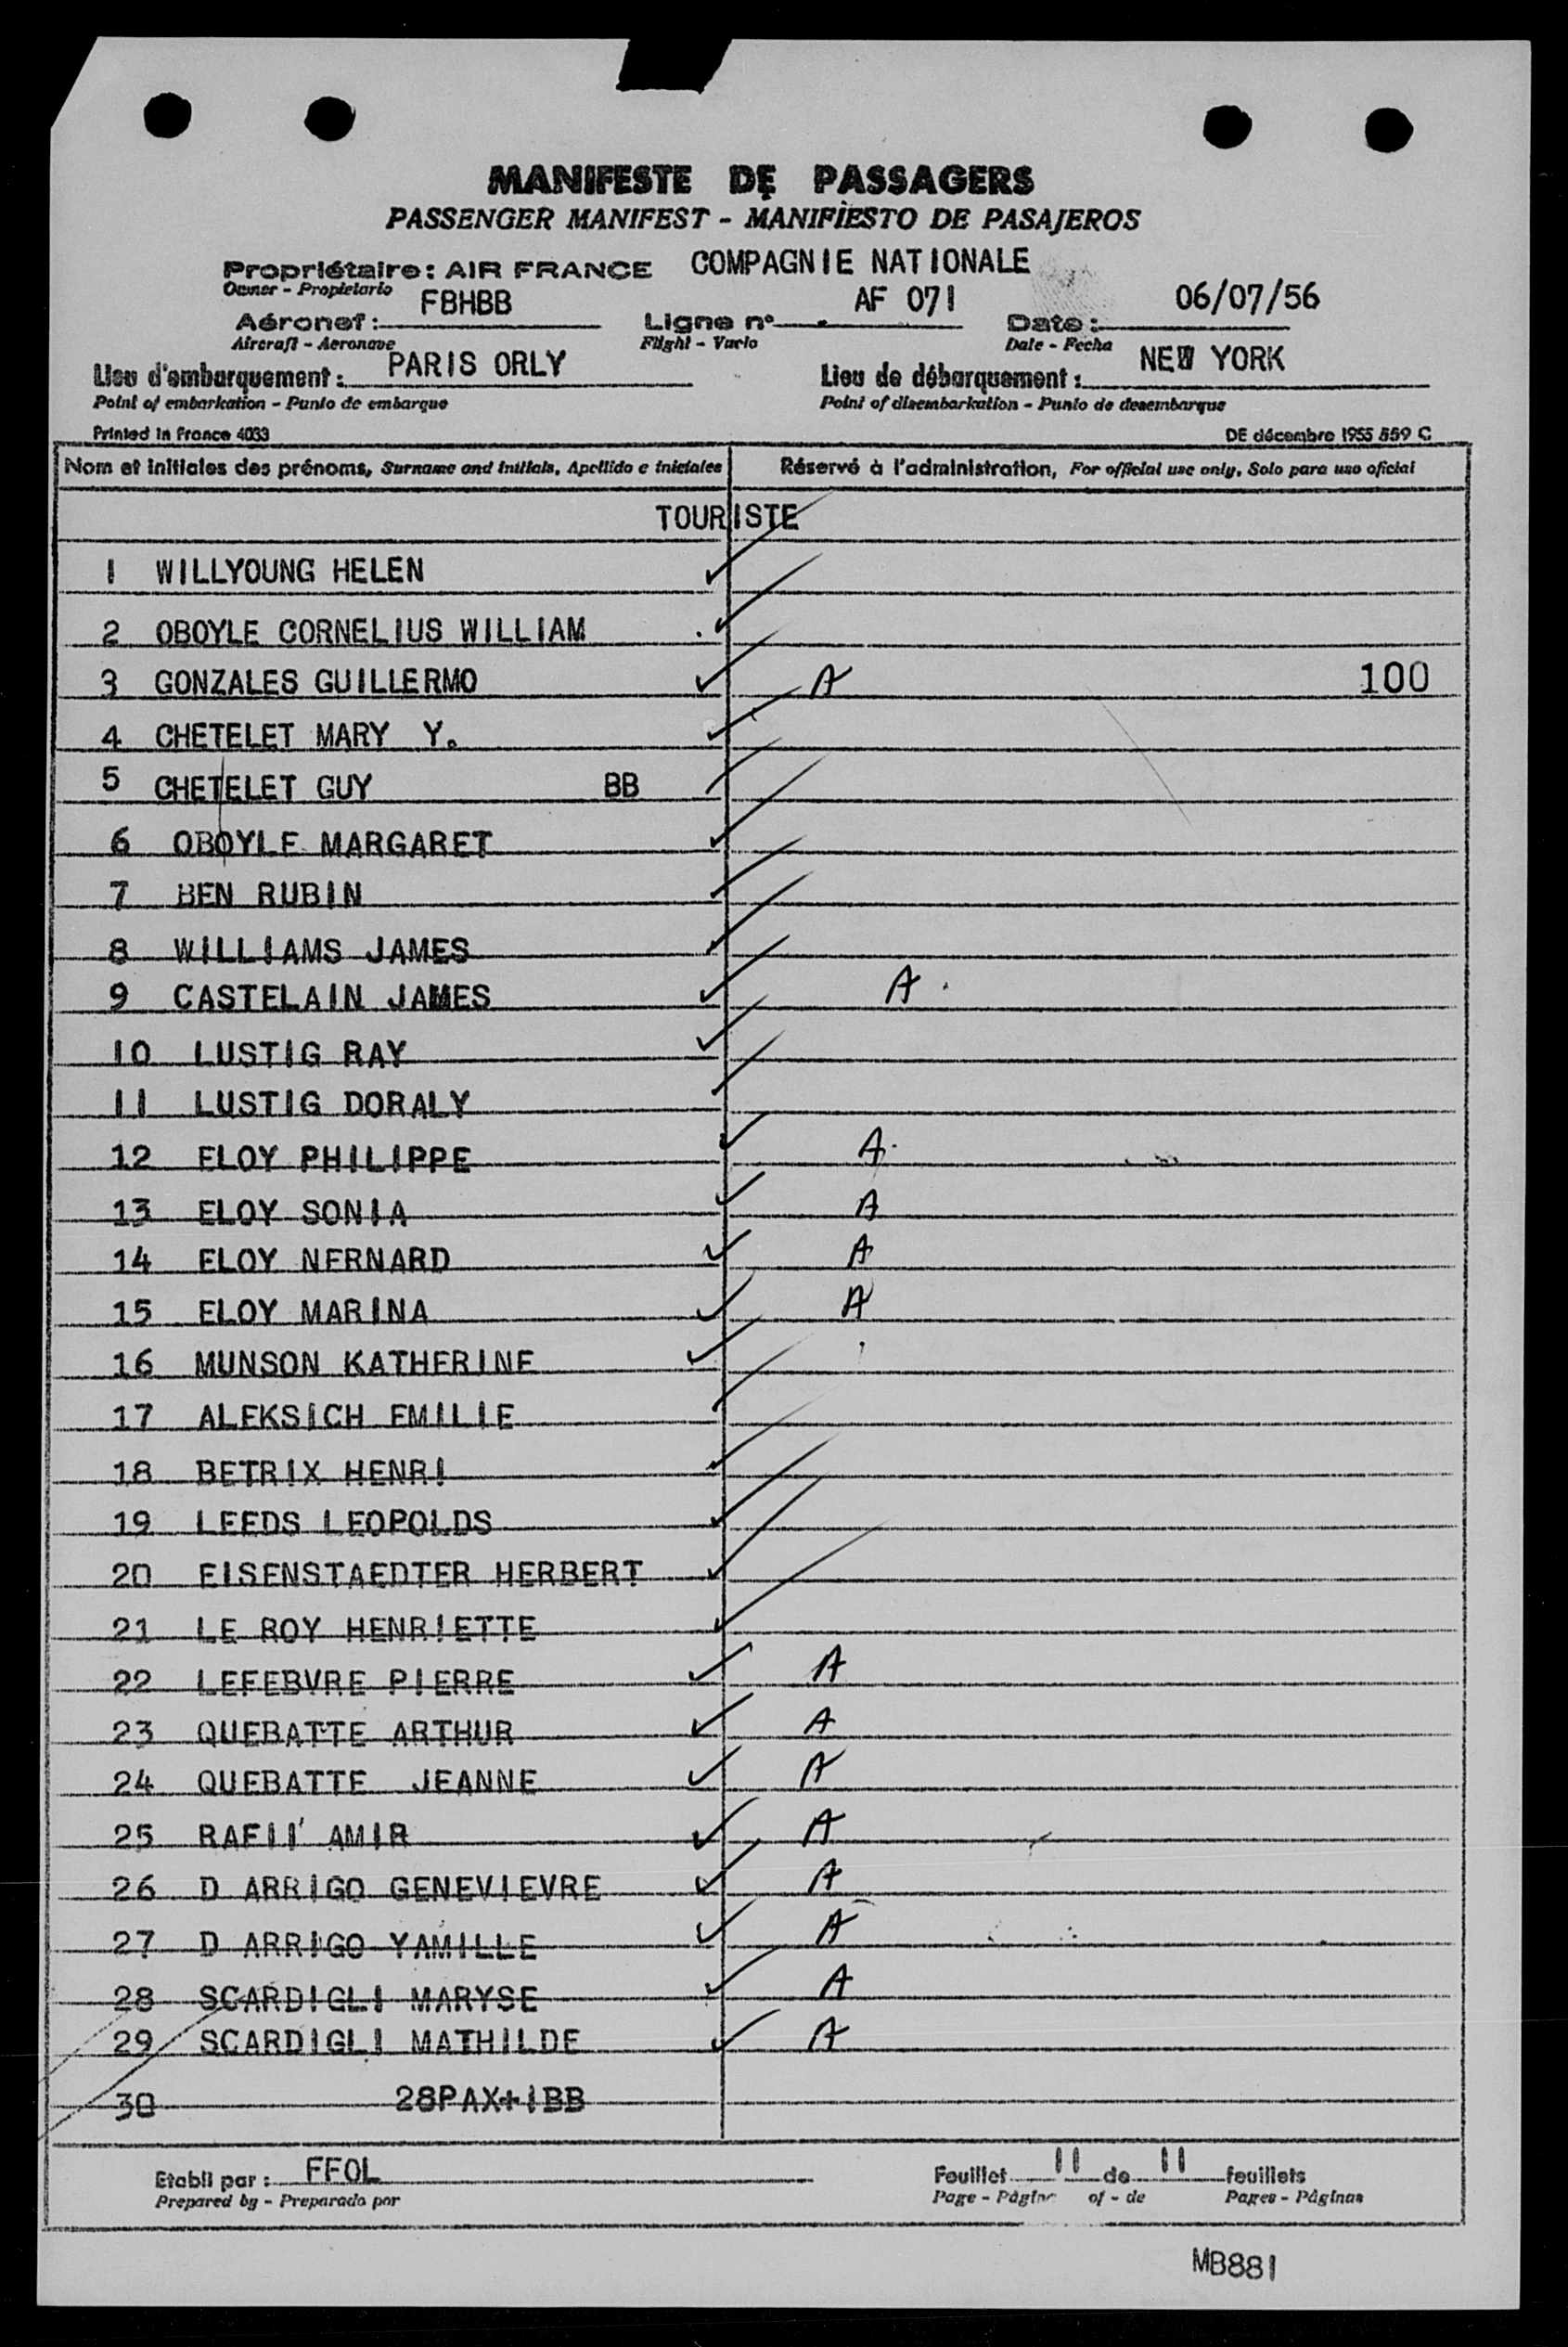 MANIFESTE DE PASSAGERS
PASSENGER MANIFEST - MANIFIESTO DE PASAJEROS
Propriétaire: AIR FRANCE COMPAGNIE NATIONALE
Owner - Propietario
Aéronef: FBHBB Ligne n° AF 071 Date: 06/07/56
Aircraft - Aeronave Flight - Vuelo Date - Fecha
Lieu d'embarquement: PARIS ORLY Lieu de débarquement: NEW YORK
Point of embarkation - Punto de embarque Point of disembarkation - Punto de desembarque
Printed in France 4033 DE décembre 1955 559 C
Nom et initiales des prénoms, Surname and initials, Apellido e iniciales Réservé à l'administration, For official use only, Solo para uso oficial
TOURISTE
1 WILLYOUNG HELEN
2 OBOYLE CORNELIUS WILLIAM
3 GONZALES GUILLERMO A 100
4 CHETELET MARY Y.
5 CHETELET GUY BB
6 OBOYLE MARGARET
7 BEN RUBIN
8 WILLIAMS JAMES
9 CASTELAIN JAMES A
10 LUSTIG RAY
11 LUSTIG DORALY
12 ELOY PHILIPPE A
13 ELOY SONIA A
14 ELOY NERNARD A
15 ELOY MARINA A
16 MUNSON KATHERINE
17 ALEKSICH EMILIE
18 BETRIX HENRI
19 LEEDS LEOPOLDS
20 EISENSTAEDTER HERBERT
21 LE ROY HENRIETTE
22 LEFEBVRE PIERRE A
23 QUEBATTE ARTHUR A
24 QUEBATTE JEANNE A
25 RAFII' AMIR A
26 D ARRIGO GENEVIEVRE A
27 D ARRIGO YAMILLE A
28 SCARDIGLI MARYSE A
29 SCARDIGLI MATHILDE A
30 28PAX+1BB
Etabli par: FFOL Feuillet 11 de 11 feuillets
Prepared by - Preparado por Page - Página of - de Pages - Páginas
MB881